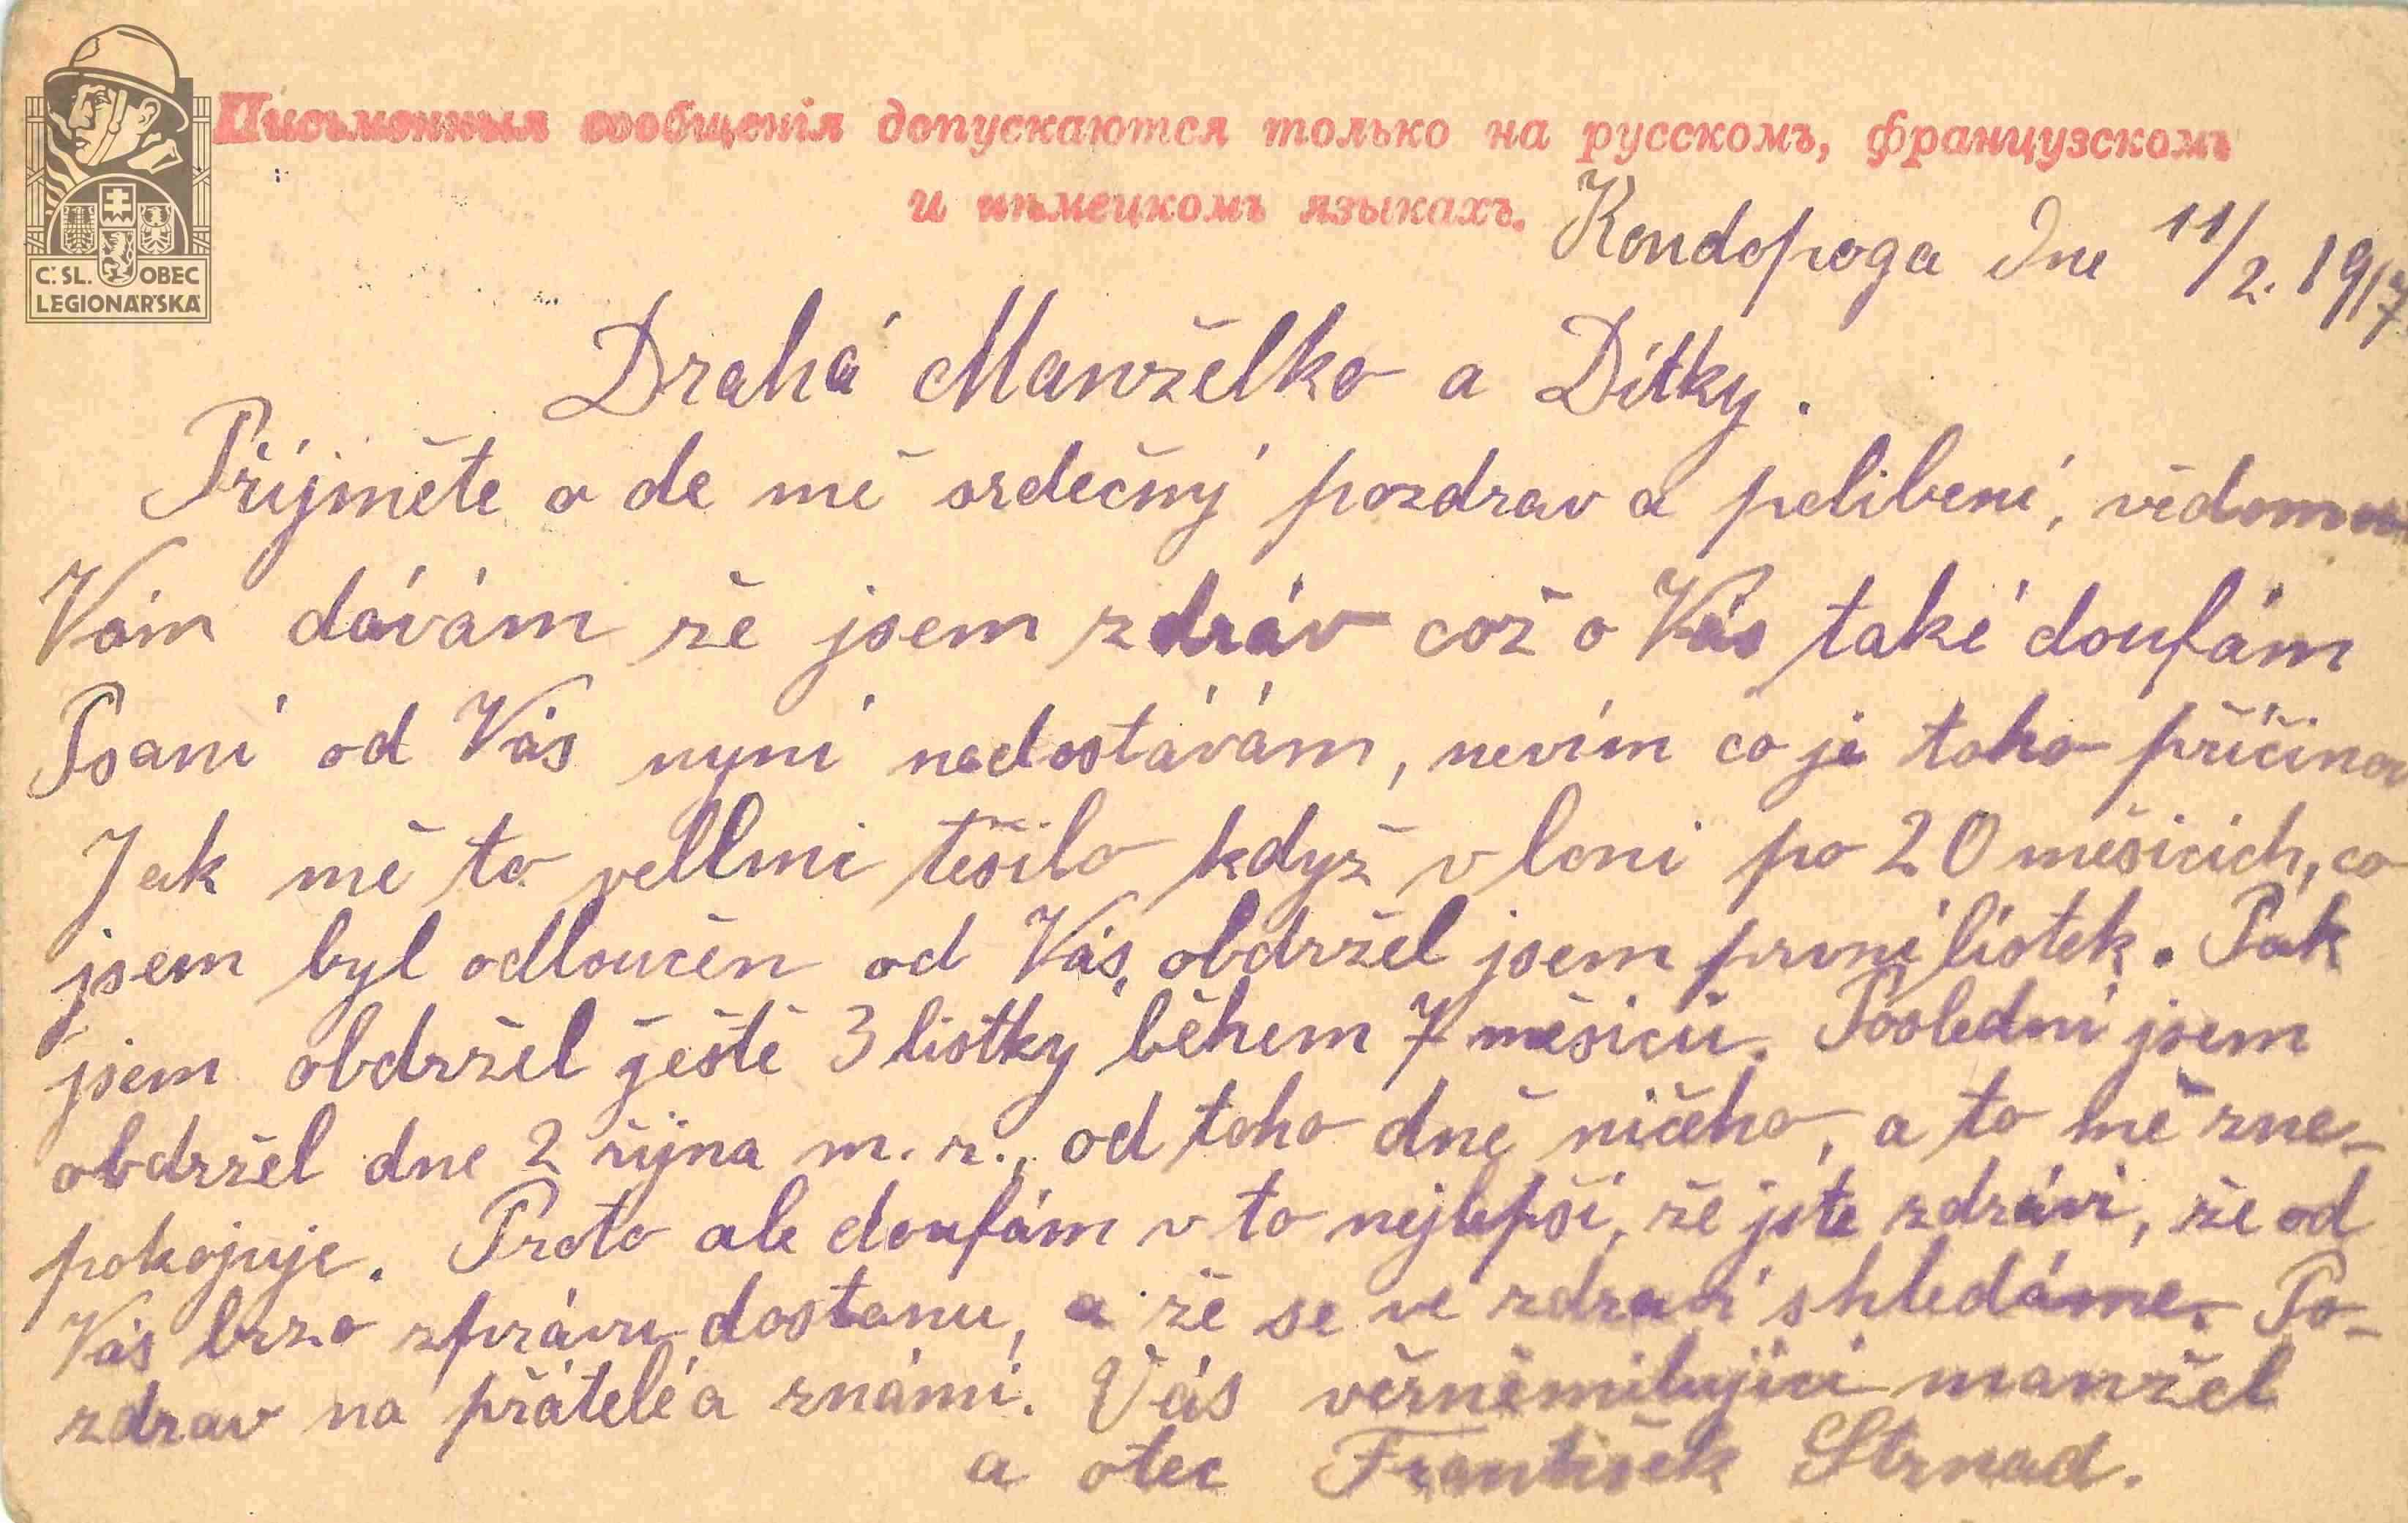 Письменныя сообщенія допускаются только на русскомъ, французскомъ
и нѣмецкомъ языкахъ.
Č. SL. OBEC
LEGIONÁŘSKÁ
Kondopoga dne 11/2. 1917
Drahá Manželko a Dítky.
Přijměte o de mě srdečný pozdrav a polibení, vědomu
Vám dávám že jsem zdráv což o Vás také doufám
Psaní od Vás nyní nedostávám, nevím co je toho příčina
Jak mě to vellmi těšilo když v loni po 20 měsících, co
jsem byl odloučen od Vás, obdržel jsem první lístek. Pak
jsem obdržel ještě 3 lístky během 7 měsíců. Poslední jsem
obdržel dne 2 října m. r., od toho dně ničeho, a to mě zne-
pokojuje. Proto ale doufám v to nejlepší, že jste zdrávi, že od
Vás brzo zprávu dostanu, a že se ve zdraví shledáme. Po-
zdrav na přátelé a známí. Váš věrněmilující manžel
a otec František Strnad.